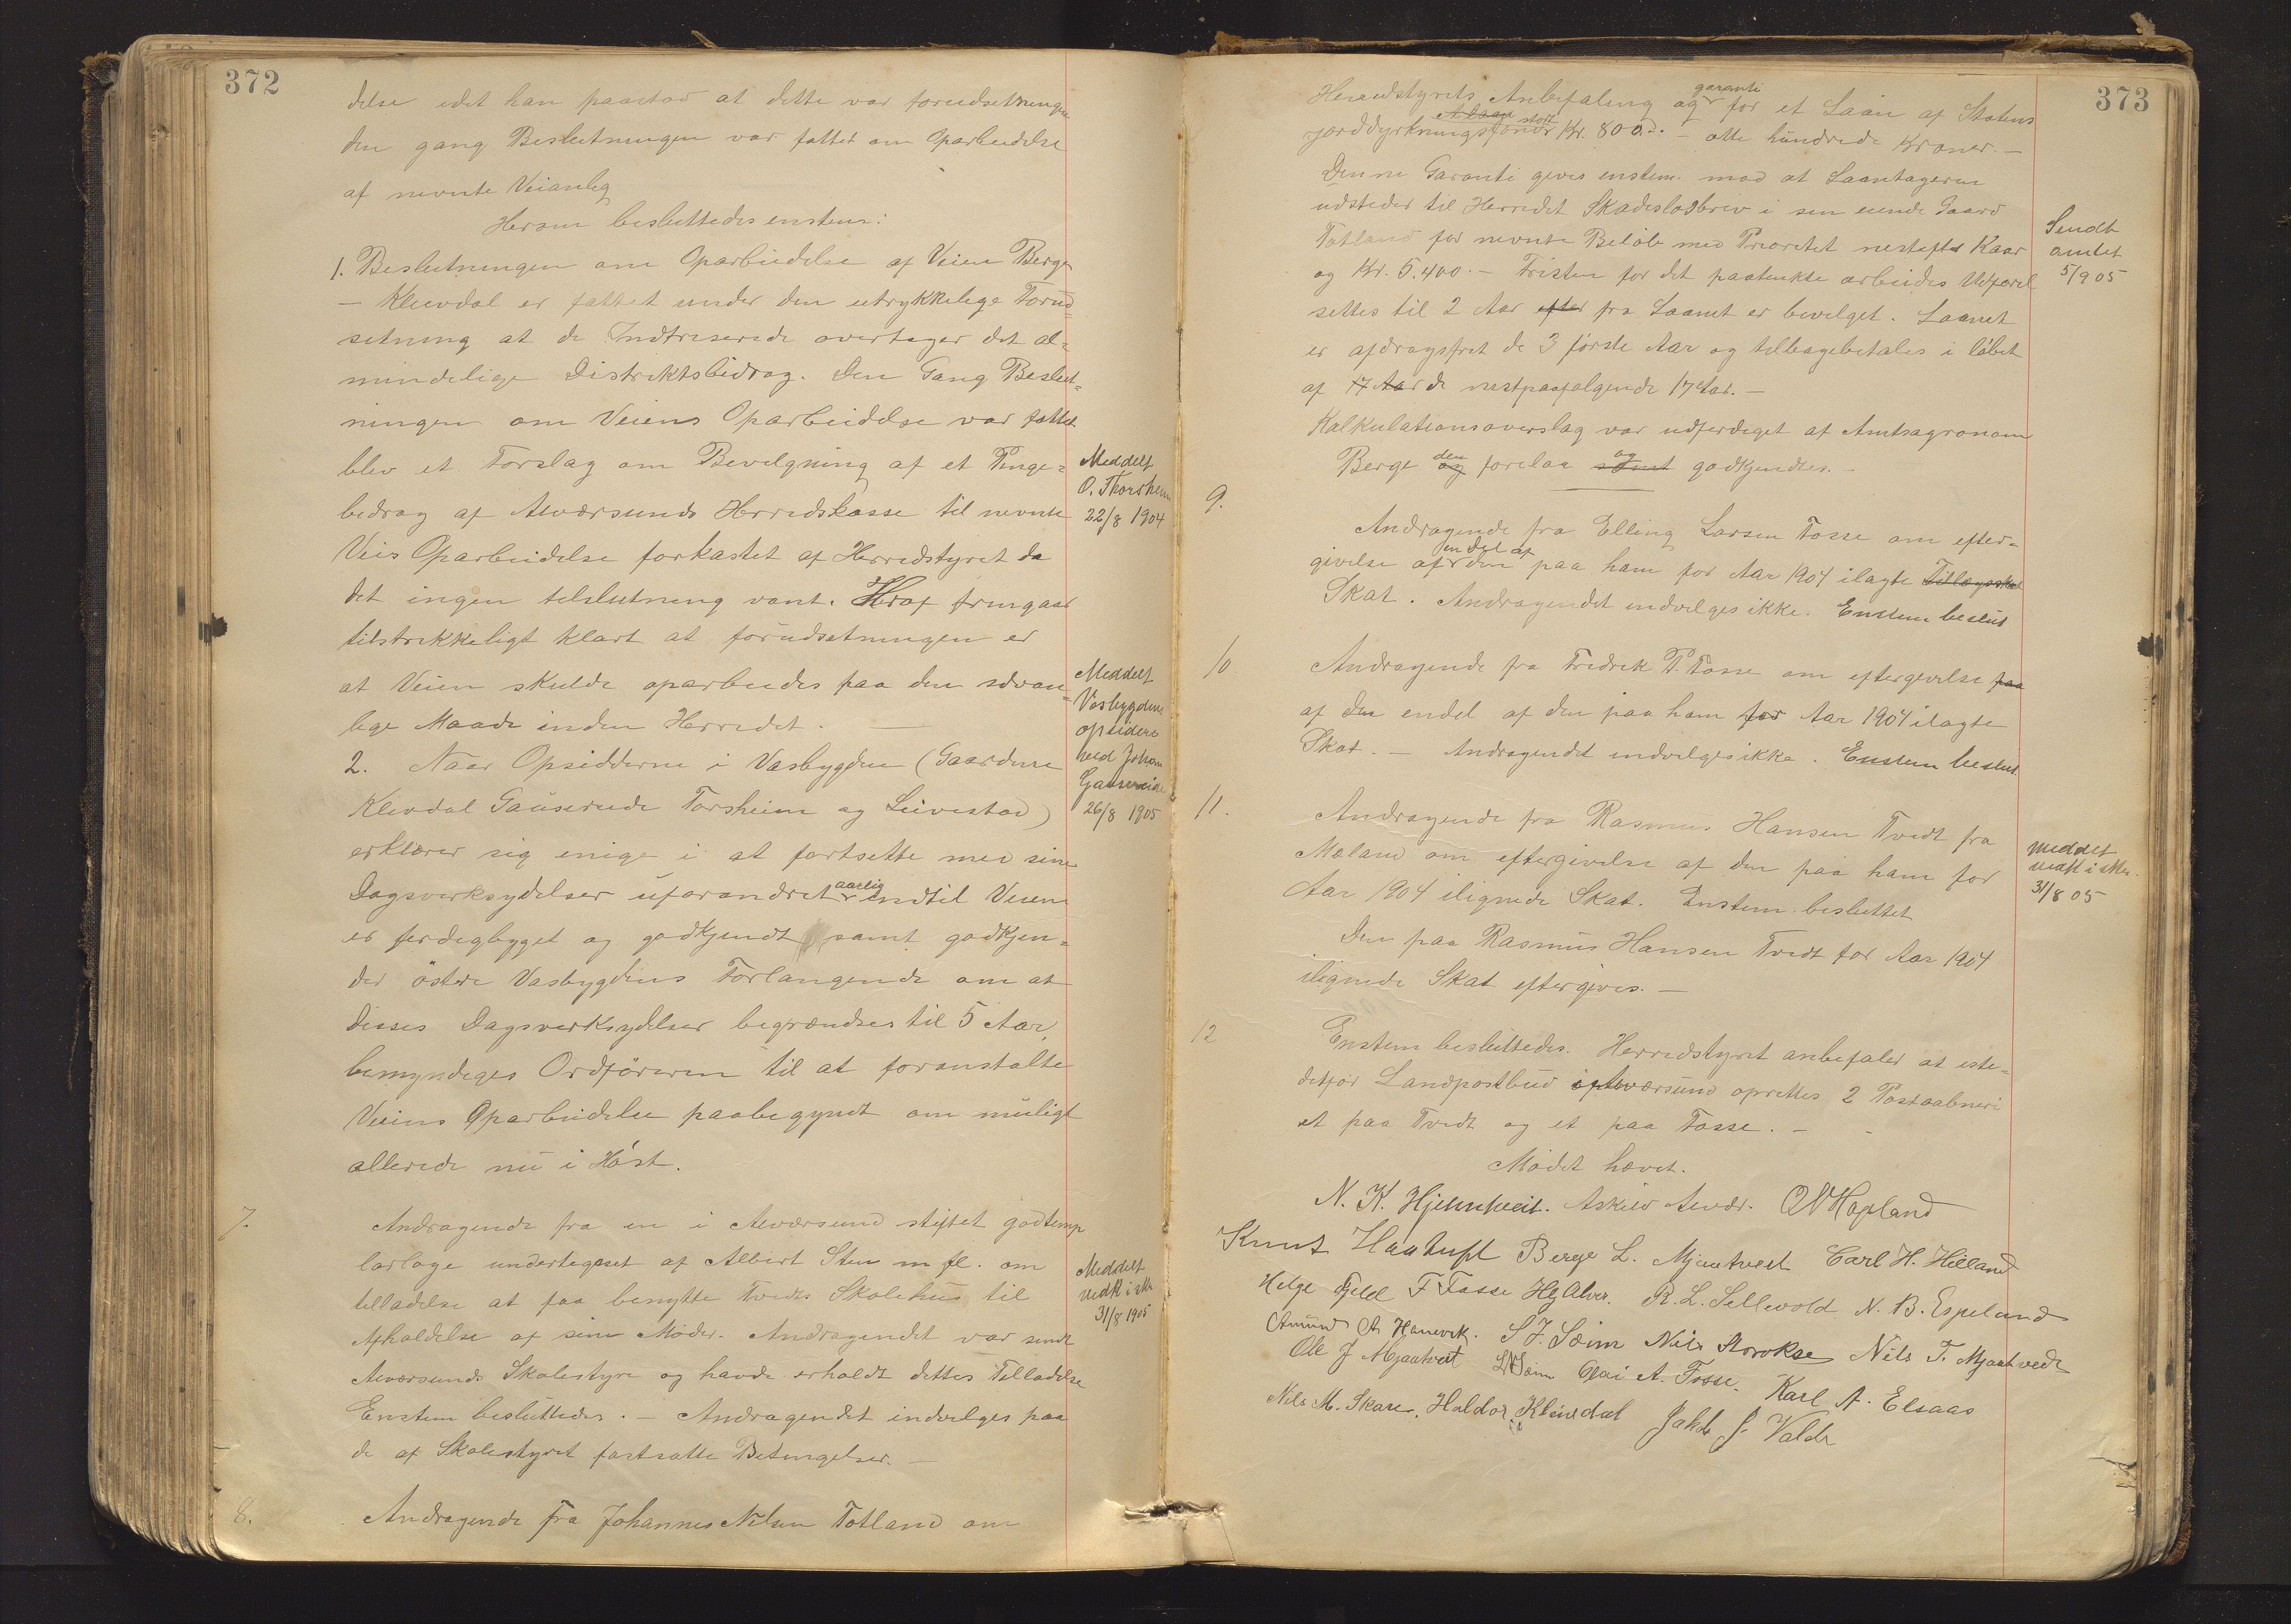 372
delse idet han paastod at dette var forudsetningen
den gang Beslutningen var fattet om Oparbeidelse
af nevnte Veianleg
Herom besluttedes enstem:
1. Beslutningen om Oparbeidelse af Veien Berge
— Kleivdal er fattet under den utrykkelige Forud=
setning at de Indtreserede overtager det al=
mindelige Distriktsbidrag. Den Gang Beslut=
ningen om Veiens Oparbeidelse var fattet
blev et Forslag om Bevilgning af et Penge=
bedrag af Alværsunds Herredskasse til nevnte
Veis Oparbeidelse forkastet af Herredstyret da
det ingen telslutning vant. Heraf fremgaar
tilstrekkeligt klart at forudsetningen er
at Veien skulde oparbeides paa den sdvan=
lige Maade inden Herredet. —
2. Naar Opsidderne i Vasbygden (Gaardene
Kleivdal Gauserude Torsheim og Leivestad)
erklærer sig enige i at fortsette med sine
Dagsverksydelser uforandret aarlig indtil Veien
er ferdigbyget og godkjendt samt godkjen=
der östre Vasbygdens Forlangende om at
disses Dagsverksydelser begrændses til 5 Aar,
bemyndiges Ordföreren til at foranstalte
Veiens Oparbeidelse paabegyndt om muligt
allerede nu i Höst.
Meddelt
O. Thorsheim
22/8 1904
Meddelt
Vasbygdens
opsidere
ved Johan
26/8 1905
7. Andragende fra en i Alværsund stiftet godtemp
larloge undertegnet af Albert Sten m fl. om
telladelse at faa benytte Tvedts Skolehus til
Afholdelse af sine Möder. Andragendet var sendt
Alværsunds Skolestyre og havde erholdt dettes Telladelse
Enstem besluttedes. — Andragendet indvilges paa
de af Skolestyret fastsatte Betingelser. —
Meddelt
31/8 1905
8. Andragende fra Johannes Nilsen Totland om
373
Herredstyrets Anbefaling og garanti for et Laan af Statens
jorddyrkningsfond stort Kr. 800.— otte hundrede Kroner.—
Denne Garanti gives enstem. mod at Laantageren
udsteder til Herredet Skadeslösbrev i sin eiende Gaard
Totland for nevnte Belöb med Prioretet nestefter Kaar
og Kr. 5.400.— Fristen for det paatenkte arbeides Udförel
settes til 2 Aar efter fra Laanet er bevilget. Laanet
er afdragsfrit de 3 förste Aar og telbagebetales i löbet
af 17 Aar de nestpaafölgende 17 Aar.—
Kalkulationsoverslag var udferdiget af Amtsagronom
Berge og den forelaa samt og godkjendtes.—
Sendt
amtet
5/9 05
9. Andragende fra Elling Larsen Fosse om efter=
givelse af en del af den paa ham for Aar 1904 ilagte Tillægsskat
Skat. Andragendet indvelges ikke. Enstem beslut
10. Andragende fra Fredrik P. Fosse om eftergivelse paa
af den endel af den paa ham for Aar 1904 ilagte
Skat.— Andragendet indvelges ikke. Enstem beslut
11. Andragende fra Rasmus Hansen Tvedt fra
Mæland om eftergivelse af den paa ham for
Aar 1904 ilignede Skat. Enstem besluttet
Den paa Rasmus Hansen Tvedt for Aar 1904
ilignede Skat eftergives.—
Meddelt
31/8 05
12 Enstem besluttedes. Herredstyret anbefaler at iste=
detfor Landpostbud i Alværsund oprettes 2 Postaabneri
et paa Tvedt og et paa Fosse.—
Mödet hævet.
N. K. Hjelmtveit. Askild Alvær. O N Hopland
Knut Haatuft Berge L. Mjaatvedt Carl H. Helland
Helge Fjeld F Fosse H Alver. R. L. Sellevold N. B. Espeland
Amund A Hanevik. S J. Seim Nils Storokse Nils T. Mjaatvedt
Ole J Mjaatveit L Seim A. Fosse. Karl A. Elsaas
Nils M. Skare. Haldor Kleivdal Jakob J. Valde